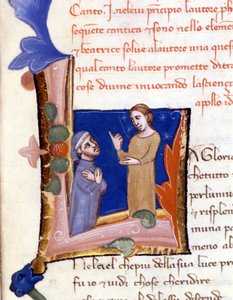 Canto i nelcui principio lautore ph
sequete cantica & sono nello eleme
& beatrice solue alautore una ques
qual canto lautore promette ditra
cose diuine inuocando lascienz
apollo id
A Gloria
che tutto
per luniu
& risplen
in una pa
meno al
Nel ciel che piu della sua luce pr
fu io & uidi chose che ridire